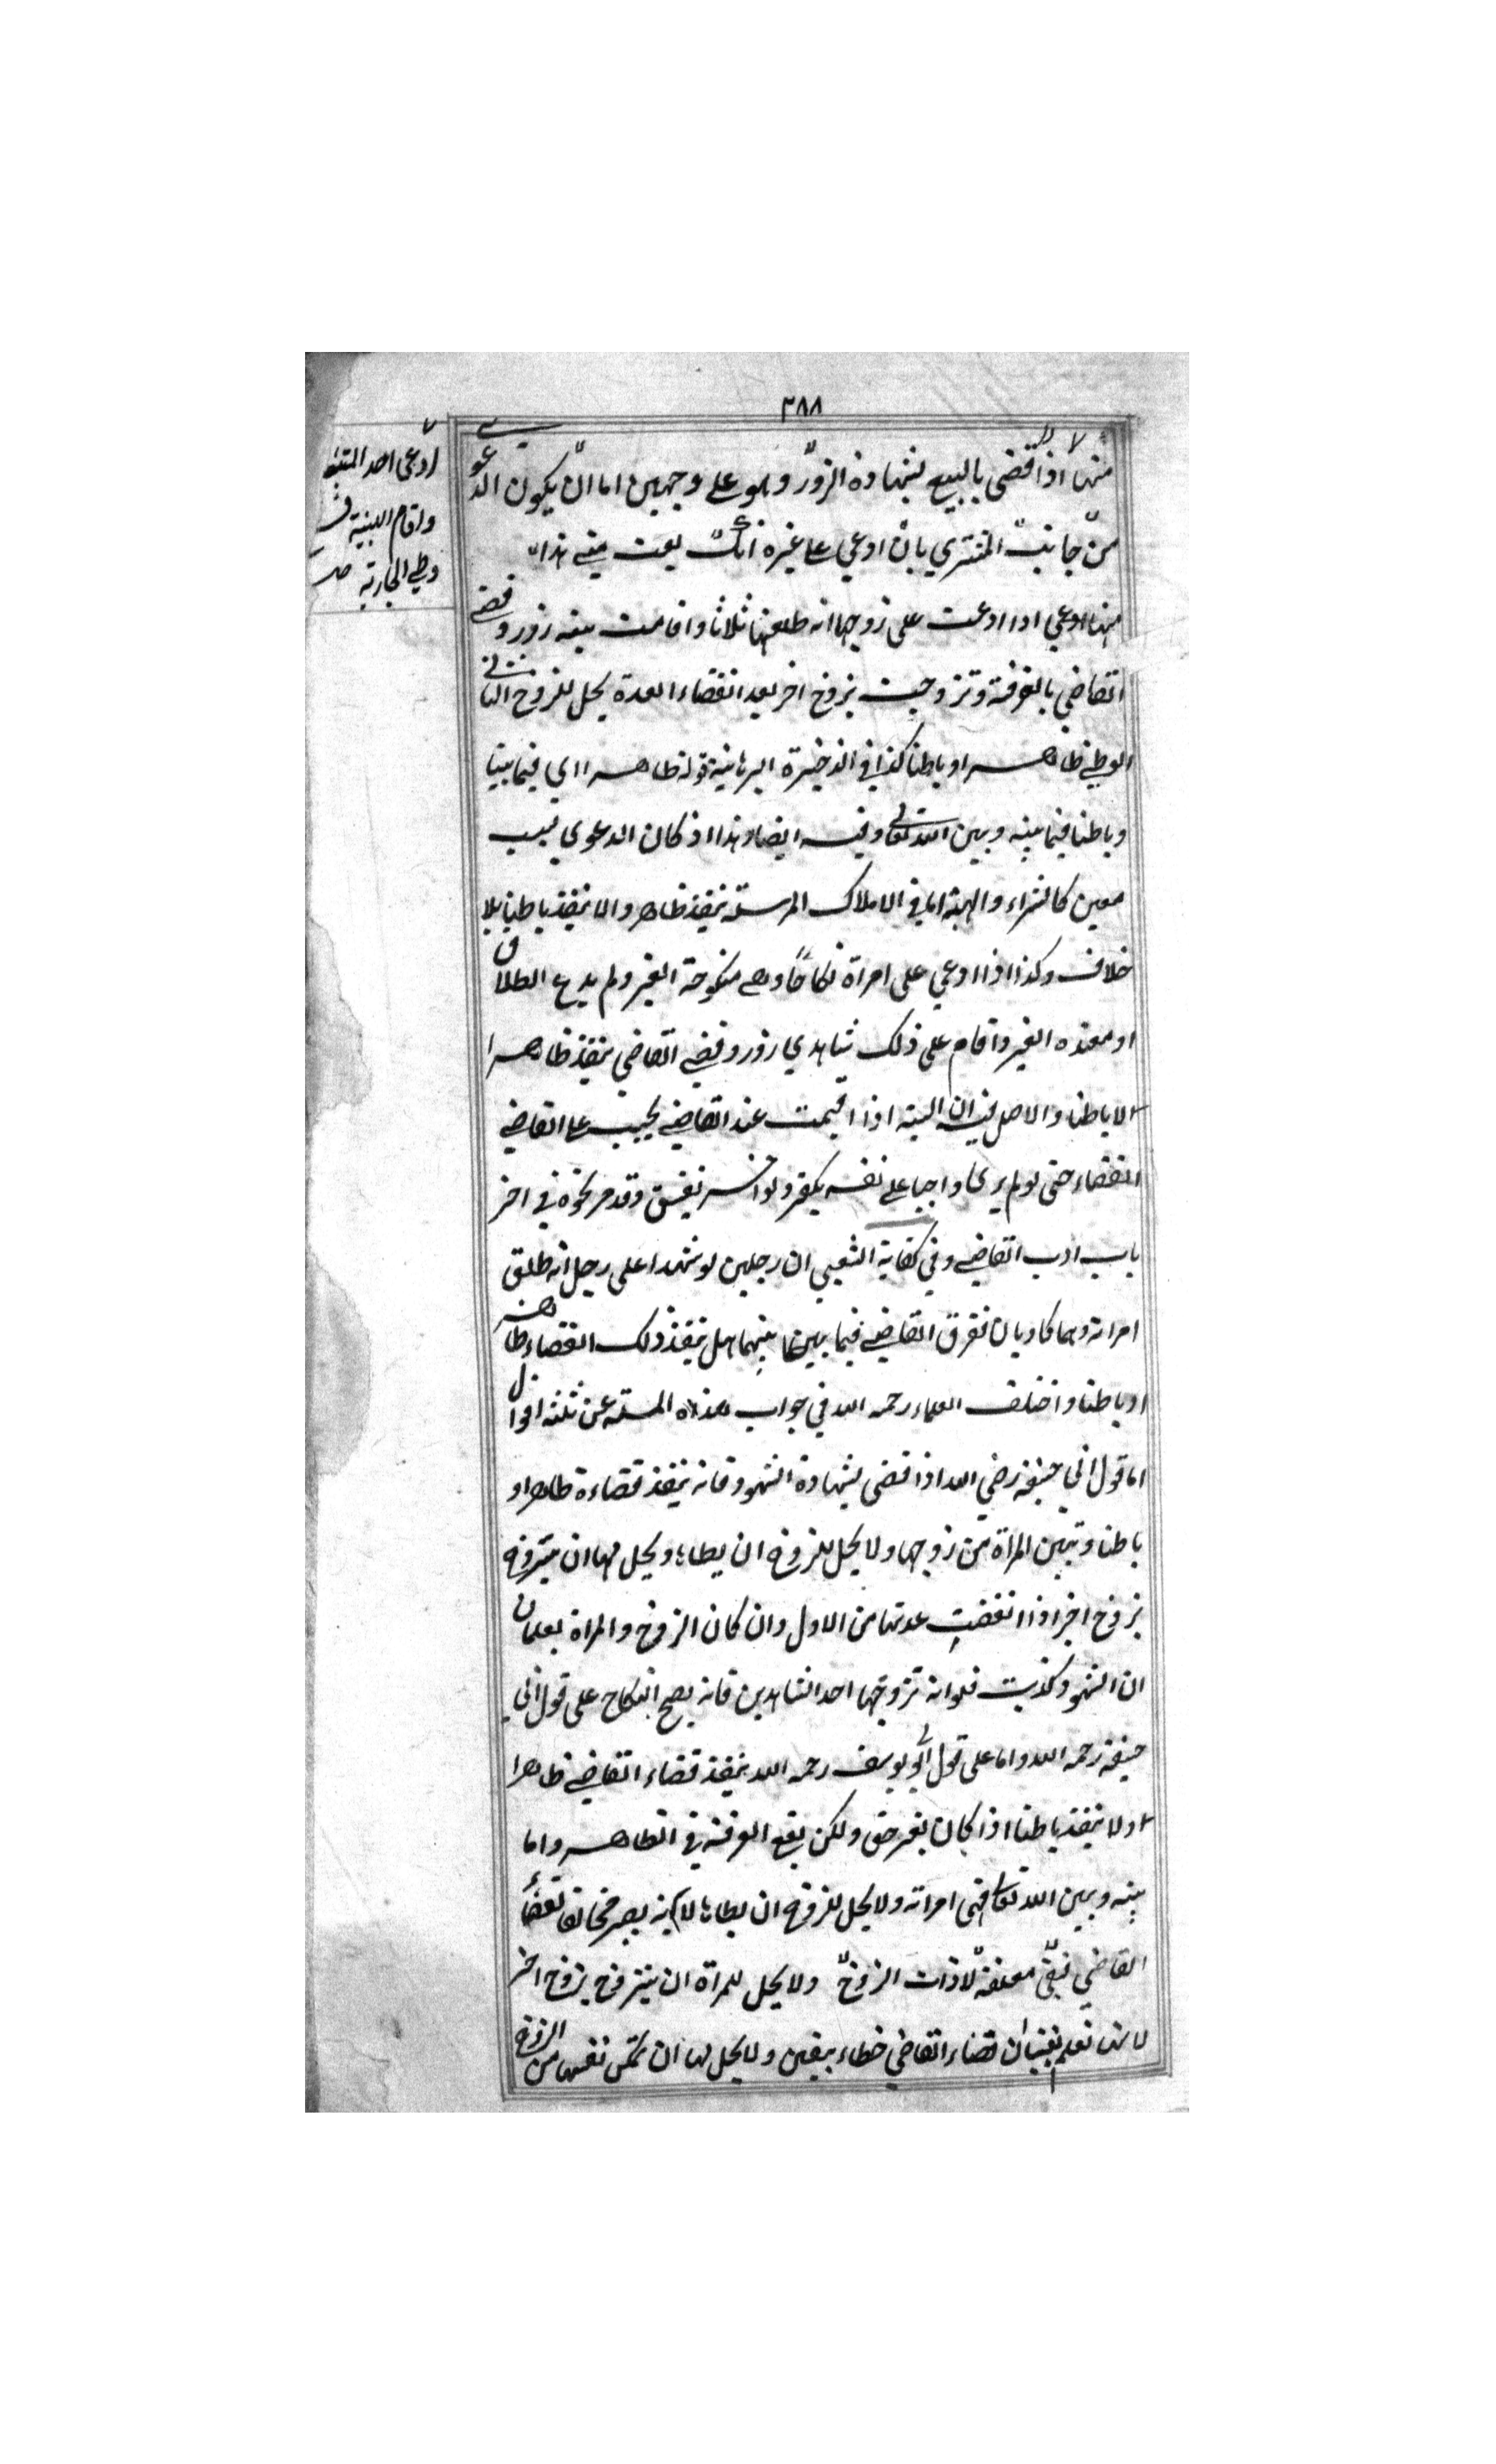 ٣٨٨
منها اذا قضى بالبيع بشهادة الزور وهو على وجهين اما ان يكون الدعوى
من جانب المشتري بان ادعي على غيره انك بعت مني هذا
منها ادعي اذا ادعت على زوجها انه طلقها ثلاثا واقامت بينه زور وقضى
القاضي بالفرقة وتزوجت بزوج اخر بعد انقضاء العدة يحل للزوج الثاني
الوطي ظاهرا وباطنا كذا في الذخيرة البرهانية قوله ظاهرا اي فيما بيننا
وباطنا فيما بينه وبين الله تعالى وفيه ايضا وهذا اذ كان الدعوي بسبب
معين كالشراء والهبة اما في الاملاك المرسلة ينفذ ظاهرا ولا ينفذ باطنا بلا
خلاف وكذا اذا ادعي على امراة نكاحا وهي منكوحة الغير ولم يدع الطلاق
او معتده الغير واقام على ذلك شاهدي زور وقضي القاضي ينفذ ظاهرا
لا باطنا والاصل فيه ان البينه اذا اقيمت عند القاضي يجب على القاضي
القضاء حتى لو لم يرى واجبا على نفسه يكفر ولو اخر يفسق وقد مر نحوه في اخر
باب ادب القاضي وفي كفاية الشعبي ان رجلين لو شهدا على رجل انه طلق
امراته وهما كاذبان ففرق القاضي فيما بينهما هل ينفذ ذلك القضاء ظاهرا
او باطنا واختلف العلماء رحمه الله في جواب هذه المسئله عن ثلثه اقوال
اما قول ابي حنيفة رضي الله اذا قضى بشهادة الشهود فانه ينفذ قضاءه ظاهرا و
باطنا وتبين المراة من زوجها ولا يحل للزوج ان يطاها ويحل لها ان يتزوج
بزوج اخر اذا انقضت عدتها من الاول وان كان الزوج والمراة يعلمان
ان الشهود كذبت فلو انه تزوجها احد الشاهدين فانه يصح النكاح على قول ابي
حنيفة رحمه الله واما على قول ابي يوسف رحمه الله ينفذ قضاء القاضي ظاهرا
ولا ينفذ باطنا اذا كان بغير حق ولكن يقع الفرقة في الظاهر واما
بينه وبين الله تعالى فهي امراته ولا يحل للزوج ان يطاها لانه يصير مخالفا لقضاء
القاضي فبقى معلقة لا ذات الزوج ولا يحل للمراة ان يتزوج بزوج اخر
لانها تعلم يقينا ان قضاء القاضي خطاء بيقين ولا يحل لها ان تمكن نفسها من الزوج
ادعى احد
واقام البينة
وطي الجارية